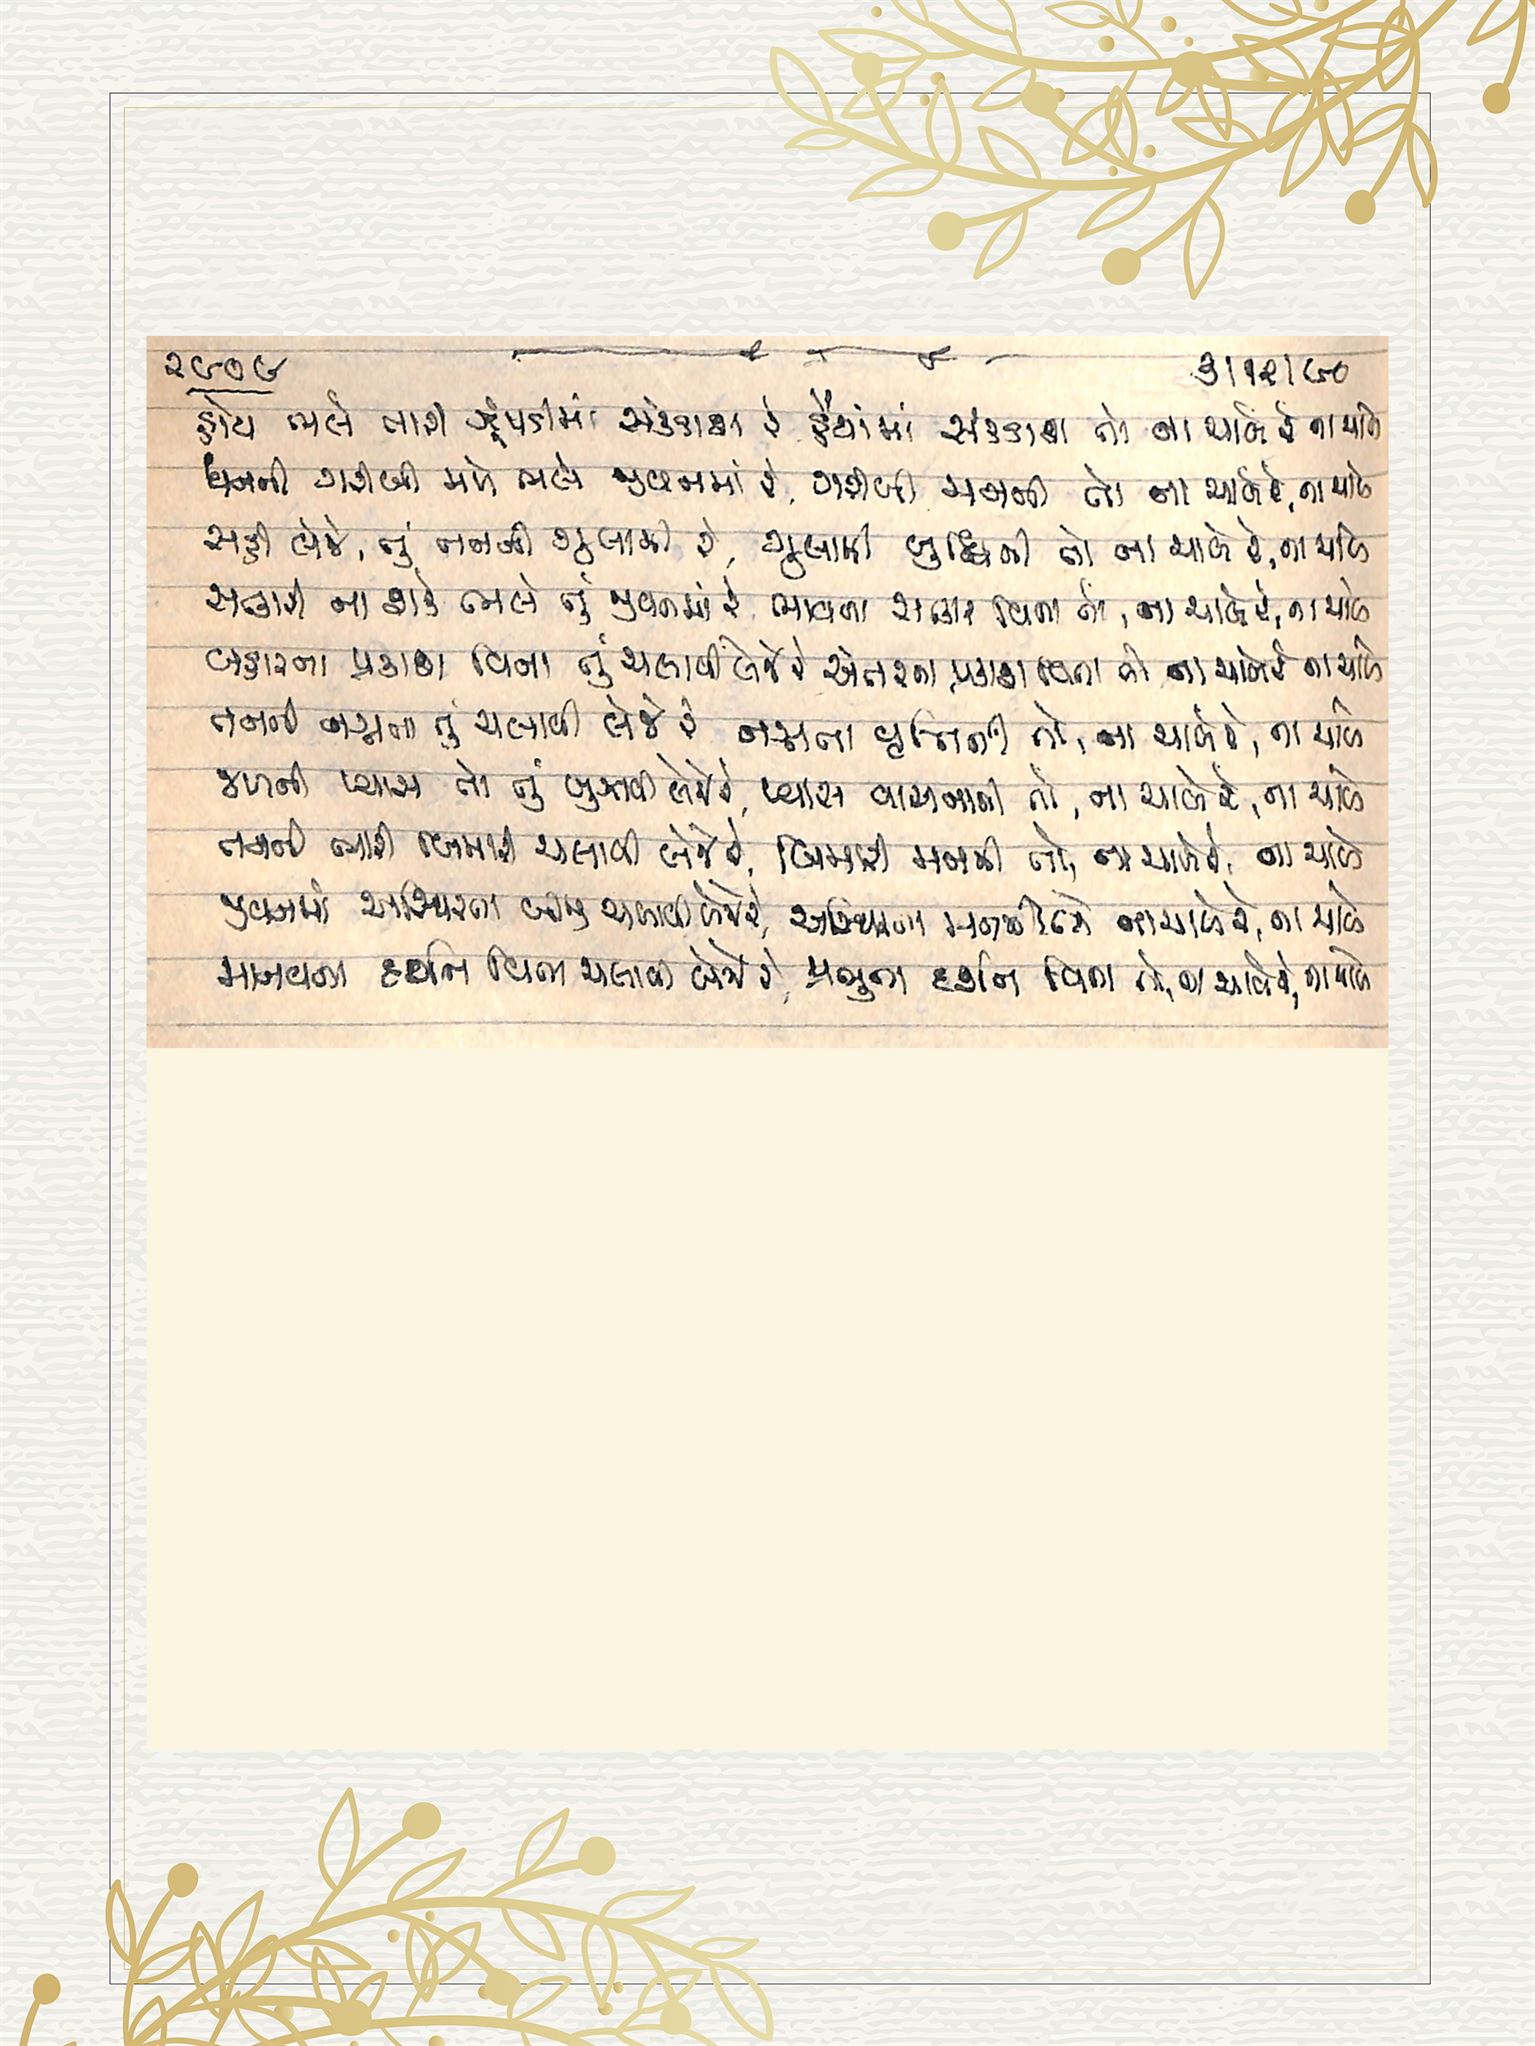 ૨૯૦૯ ૩।૧૨।૯૦
હોય ભલે તારી ઝૂંપડીમાં સંકડાશ રે હૈયાંમાં સંકડાશ તો ના ચાલે રે ના ચાલે
ધનની ગરીબી મળે ભલે જીવનમાં રે, ગરીબી મનની તો ના ચાલે રે, ના ચાલે
સહી લેજે, તું તનની ગુલામી રે, ગુલામી બુદ્ધિની તો ના ચાલે રે, ના ચાલે
સહારો ના શોધે ભલે તું જીવનમાં રે ભાવના સહાર વિના તો, ના ચાલે રે, ના ચાલે
બહારના પ્રકાશ વિના તું ચલાવી લેજે રે અંતરના પ્રકાશ વિના તો ના ચાલે રે ના ચાલે
તનની નગ્નતા તું ચલાવી લેજે રે નગ્નતા વૃત્તિની તો, ના ચાલે રે, ના ચાલે
જળની પ્યાસ તો તું બુઝાવી લેજે રે, પ્યાસ વાસનાની તો, ના ચાલે રે, ના ચાલે
તનની ભારી બિમારી ચલાવી લેજે રે, બિમારી મનની તો, ના ચાલે રે, ના ચાલે
જીવનમાં અસ્થિરતા બધી ચલાવી લેજે રે, અસ્થિરતા મનની તો ના ચાલે રે, ના ચાલે
માનવના દર્શન વિના ચલાવી લેજે રે, પ્રભુના દર્શન વિના તો, ના ચાલે રે, ના ચાલે